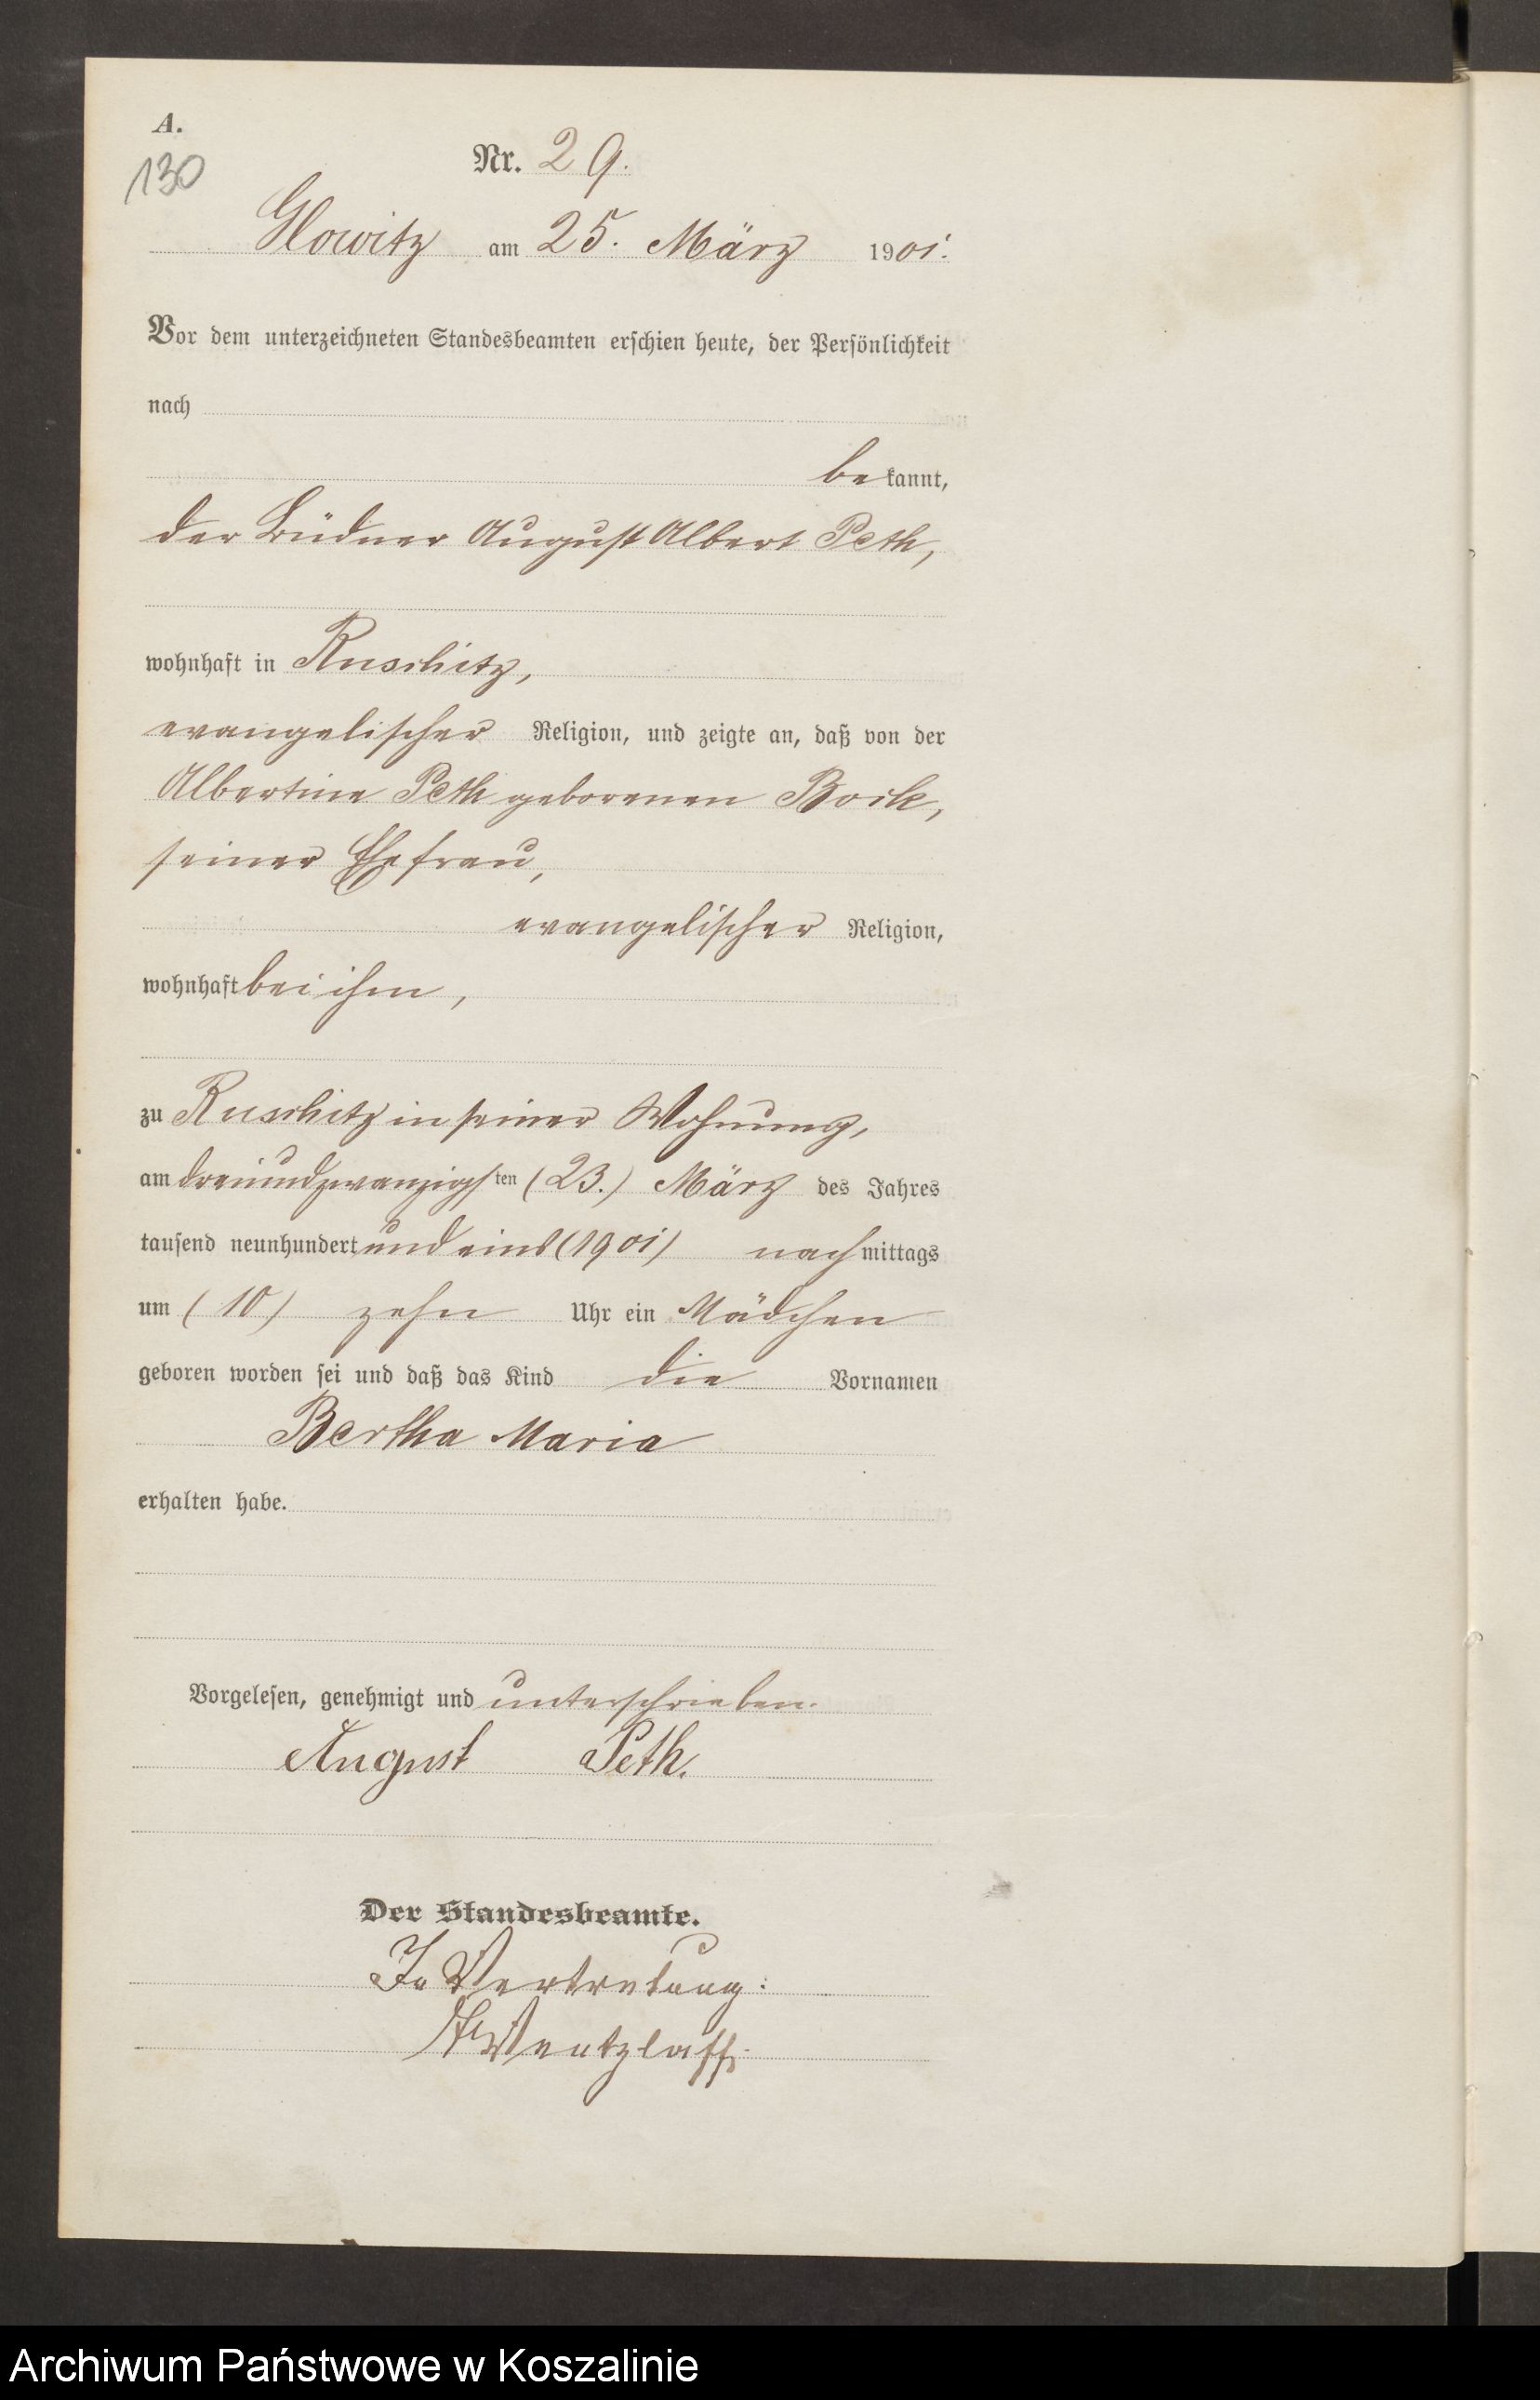 A.
130
Nr. 29.
Glowitz am 25. März 1901.
Vor dem unterzeichneten Standesbeamten erschien heute, der Persönlichkeit
nach
bekannt,
der Büdner August Albert Peth,
wohnhaft in Ruschitz,
evangelischer Religion, und zeigte an, daß von der
Albertine Peth geborenen Bock,
seiner Ehefrau,
evangelischer Religion,
wohnhaft bei ihm,
zu Ruschitz in seiner Wohnung,
am dreiundzwanzigsten (23.) März des Jahres
tausend neunhundert und eins (1901) nachmittags
um (10) zehn Uhr ein Mädchen
geboren worden sei und daß das Kind die Vornamen
Bertha Maria
erhalten habe.
Vorgelesen, genehmigt und unterschrieben.
August Peth.
Der Standesbeamte.
In Vertretung:
Wentzlaff.
Archiwum Państwowe w Koszalinie